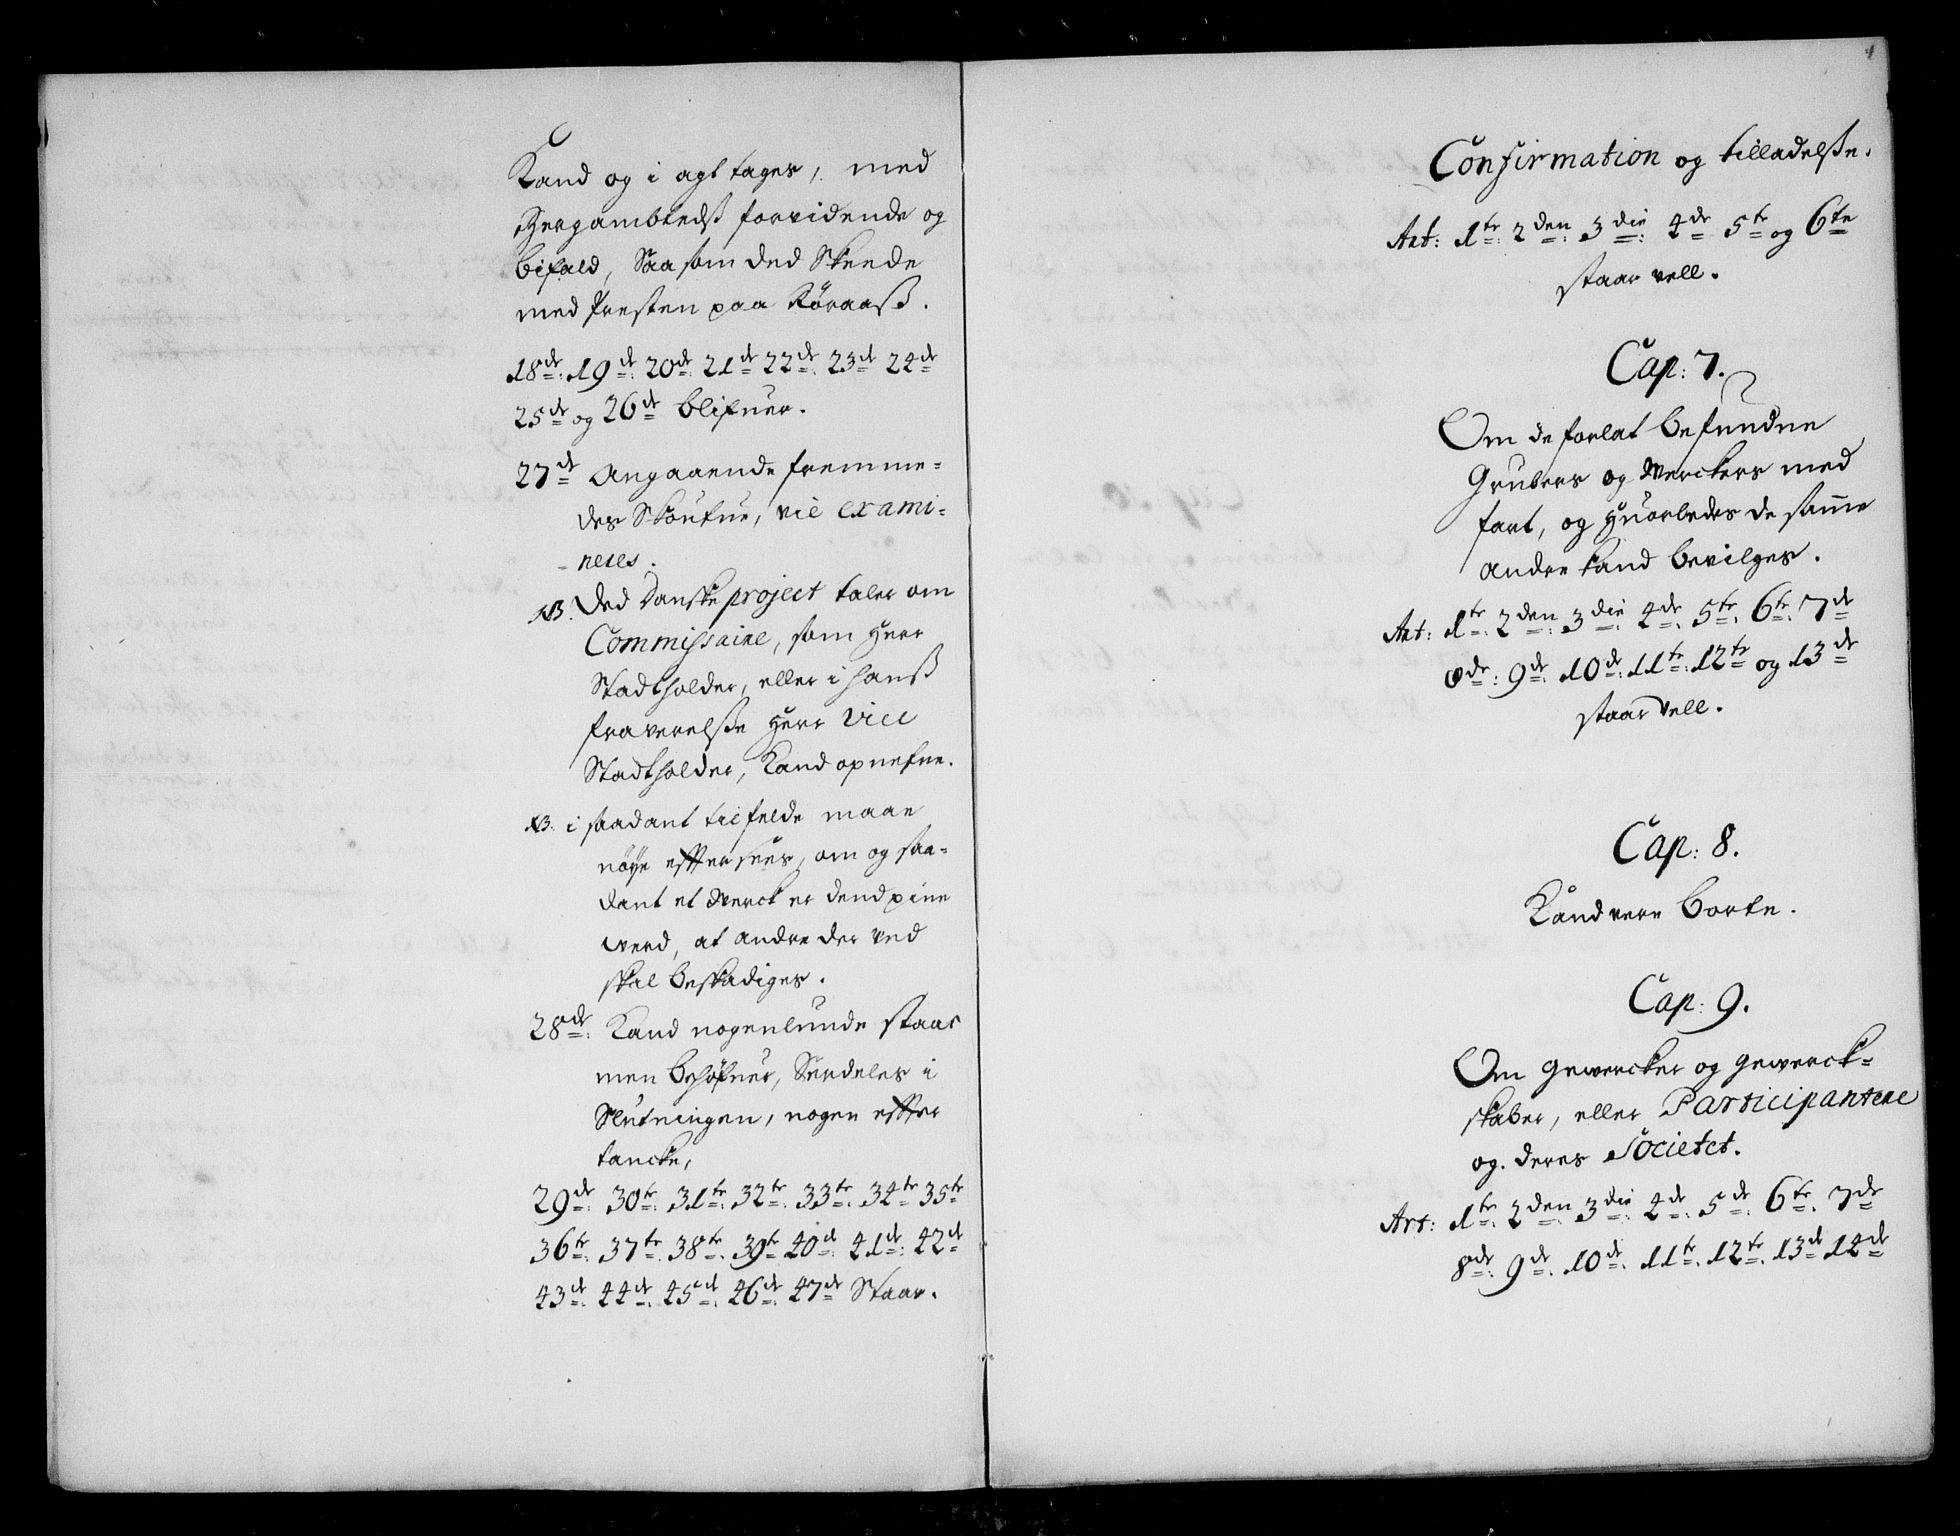 Kand og i agt tages, med
Bergambtedß forvidende og
bifald, Saa som ded Skeede
med Presten paa Röraaß.
18de: 19de: 20de: 21de 22de: 23de 24de
25de og 26de blifuer.
27de Angaaende fremme-
des Skoufue, vil exami-
neres.
NB. Ded Danske project taler om
Commissaire, som Herr
Stadtholder, eller i hanß
fraverelße Herr Vice
Stadtholder, Kand opnefne.
NB. i saadant tilfelde maae
nöye effter sees, om og saa-
dant et Werck er dend pine
werd, at andre der ved
skal beskadiges.
28de: Kand nogenlunde staar
men behöfuer, Serdeles i
Slutningen, nogen effter
tancke,
29de: 30te: 31te: 32te: 33te: 34te 35te
36te: 37te: 38te: 39te 40de: 41de: 42de
43de: 44de: 45de: 46de: 47de Staar.
4
Confirmation og tilladelße.
Art: 1te: 2den: 3die: 4de 5te og 6te
staar vell.
Cap: 7.
Om de forlat befundne
Grubers og Werckers med
fart, og Huorledes de samme
andre kand bevilges.
Art: 1te: 2den: 3die: 4de: 5te: 6te: 7de
8de: 9de: 10de: 11te: 12te og 13de
staar vell.
Cap: 8.
Kand vere borte.
Cap: 9.
Om Gewercker og Gewerck-
skaber, eller Participantere
og deres Societet.
Art: 1te: 2den: 3die: 4de: 5de: 6te: 7de
8de: 9de: 10de: 11te: 12te: 13de 14de